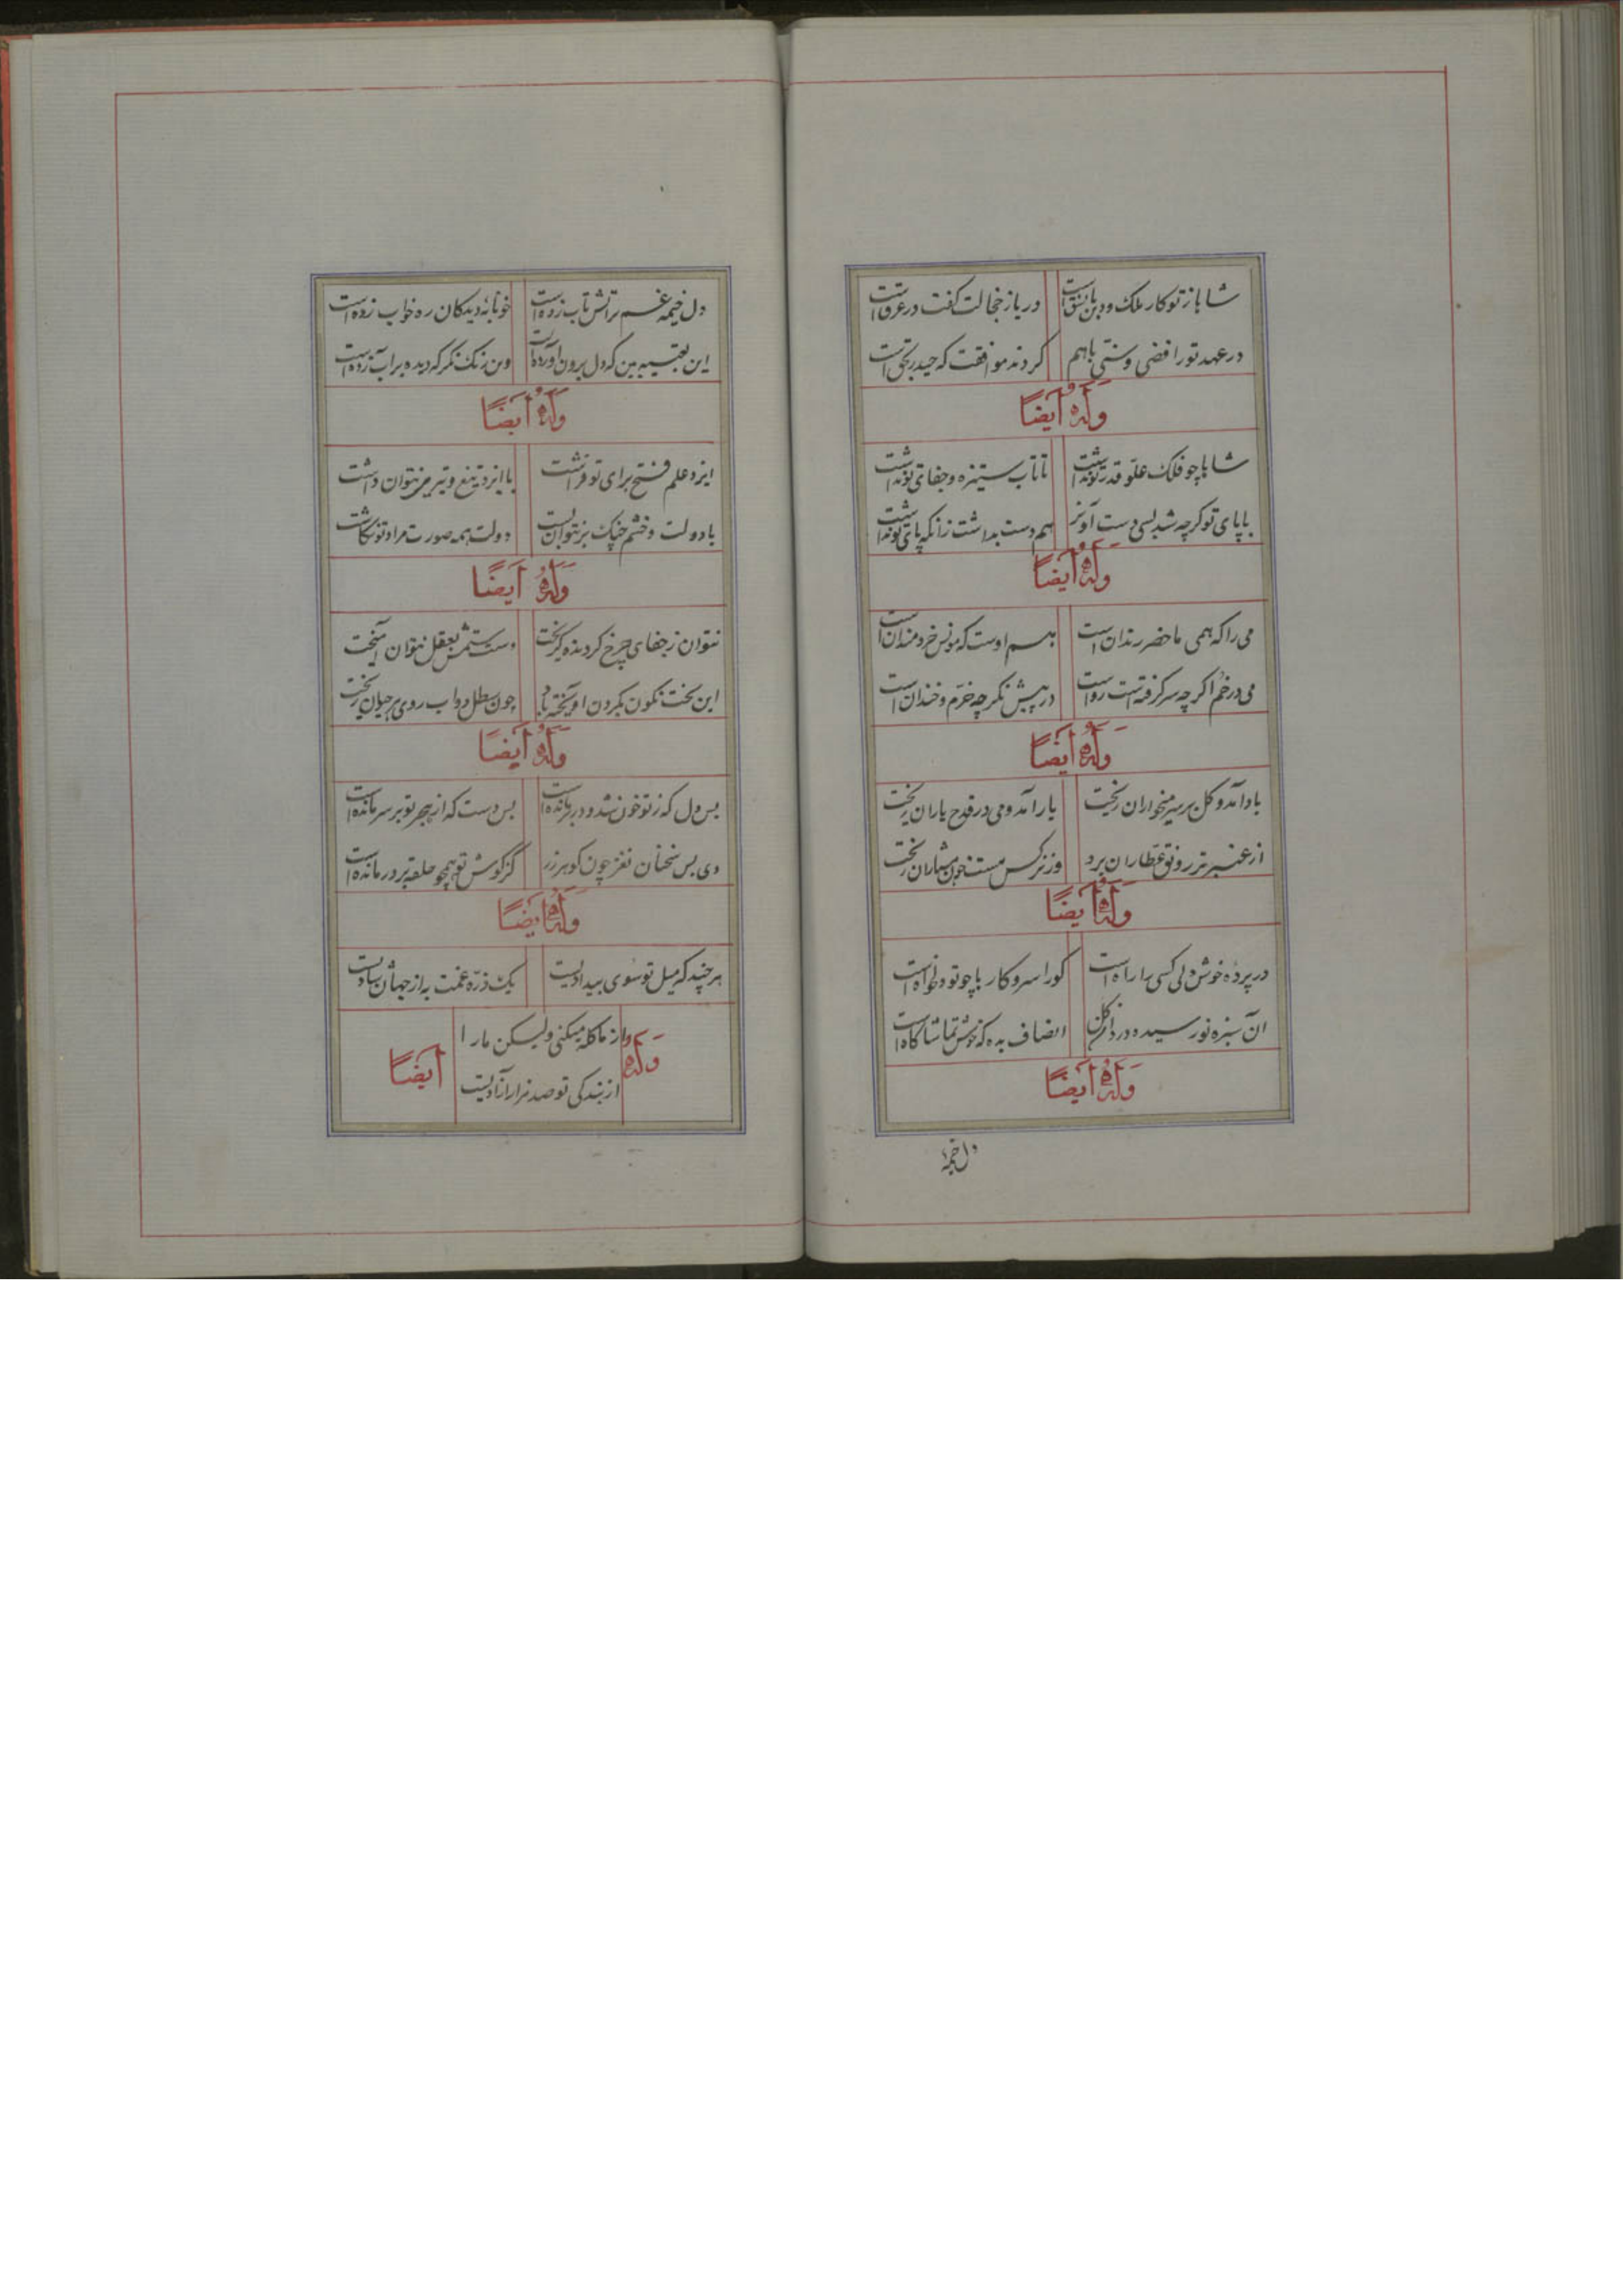 شاها ز تو کار ملک و دین با نسق است دریا ز خجالت کفت در عرق است
در عهد تو رافضی و سنی باهم کردند موافقت که حیدر بحق است
وَلَهُ أیضاً
شاها چو فلک علو قدر تو نداشت تا تاب ستیزه و جفای تو نداشت
با پای تو کرچه شد بسی دست آویز هم دست بداشت زانکه پای تو نداشت
وَلَهُ أیضاً
می را که همی ماحضر رندان است هم اوست که مونس خردمندان است
می در خم اکر چه سرکرفتست رواست در پیش نکر چه خرم و خندان است
وَلَهُ أیضاً
باد آمد و کل بر سر میخواران ریخت یار آمد و می در قدح یاران ریخت
از عنبر تر رونق عطاران برد وز نرکس مست خون هشیاران ریخت
وَلَهُ أیضاً
در پرده خوش دلی کسی را راه است کورا سر و کار با چو تو دلخواه است
آن سبزه نو رسیده در دامن کل انصاف بده که خوش تماشاکاه است
وَلَهُ أیضاً
دل خیمه
دل خیمه غم بر آتش تاب زده است خونابه دیدکان ره خواب زده است
این تعبیه بین که دل برون آورده است وین رنک نکر که دیده بر آب زده است
وَلَهُ أیضاً
ایزد علم فتح برای تو فراشت با ایزد تیغ و تیر می نتوان داشت
با دولت و خشم جنک بر نتوان بست دولت همه صورت مراد تو نکاشت
وَلَهُ أیضاً
نتوان ز جفای چرخ کردنده کریخت وز دست ستمش بعقل نتوان آمیخت
این بخت نکون بکردن آویخته باد چون سطل دواب روی هر حیران ریخت
وَلَهُ أیضاً
بس دل که ز تو خون شد و در بر مانده است بس دست که از هجر تو بر سر مانده است
وی بس سخنان نغز چون کوهر زر کز کوش تو همچو حلقه بر در مانده است
وَلَهُ أیضاً
هر چند که میل تو سوی بیدادیست یک ذره غمت به از جهان شادیست
از ما کله میکنی ولیکن ما را
از بندکی تو صد هزار آزادیست
وَلَهُ أیضاً